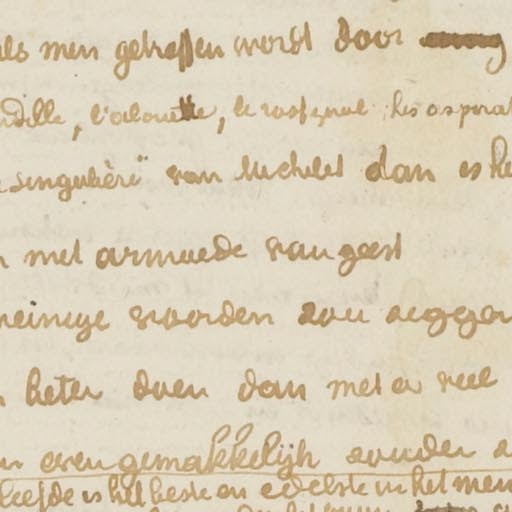 als men getroffen wordt door
ndelle, l'alouette, le rossignol, les aspirat
singulière" van Michelet dan is he
n met armoede van geest
weinige woorden zou zeggen
n beter doen dan met er veel
even gemakkelijk zonder
liefde is het beste en edelste in het men